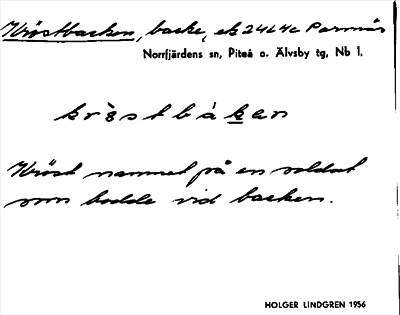 Kröstbacken, backe, ek 24L4c Parmnäs
Norrfjärdens sn, Piteå o. Älvsby tg, Nb l.
krö̀stbákan
Kröst namnet på en soldat
som bodde vid backen.
HOLGER LINDGREN 1956